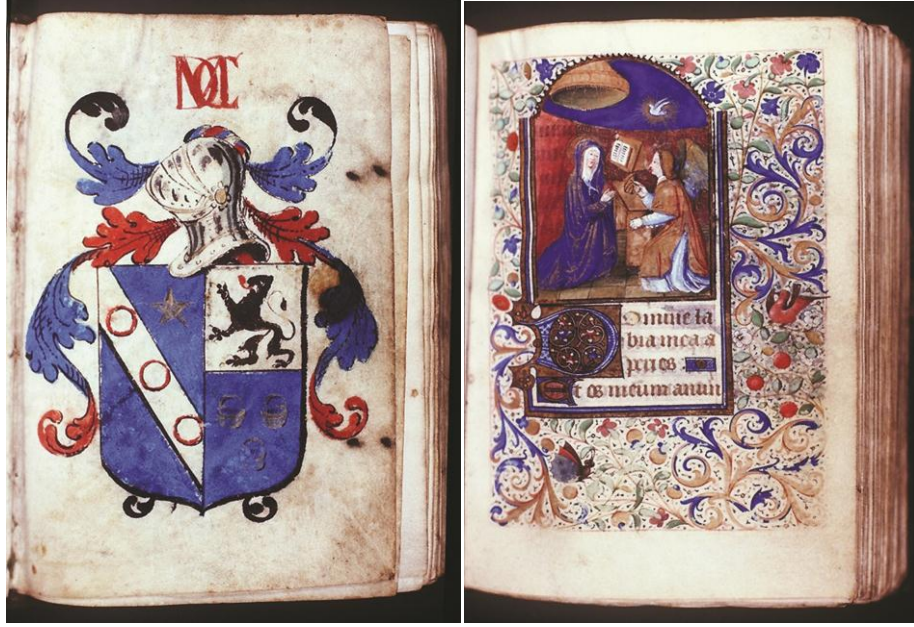 Domine la
bia mea a
peries
Et os meum anun